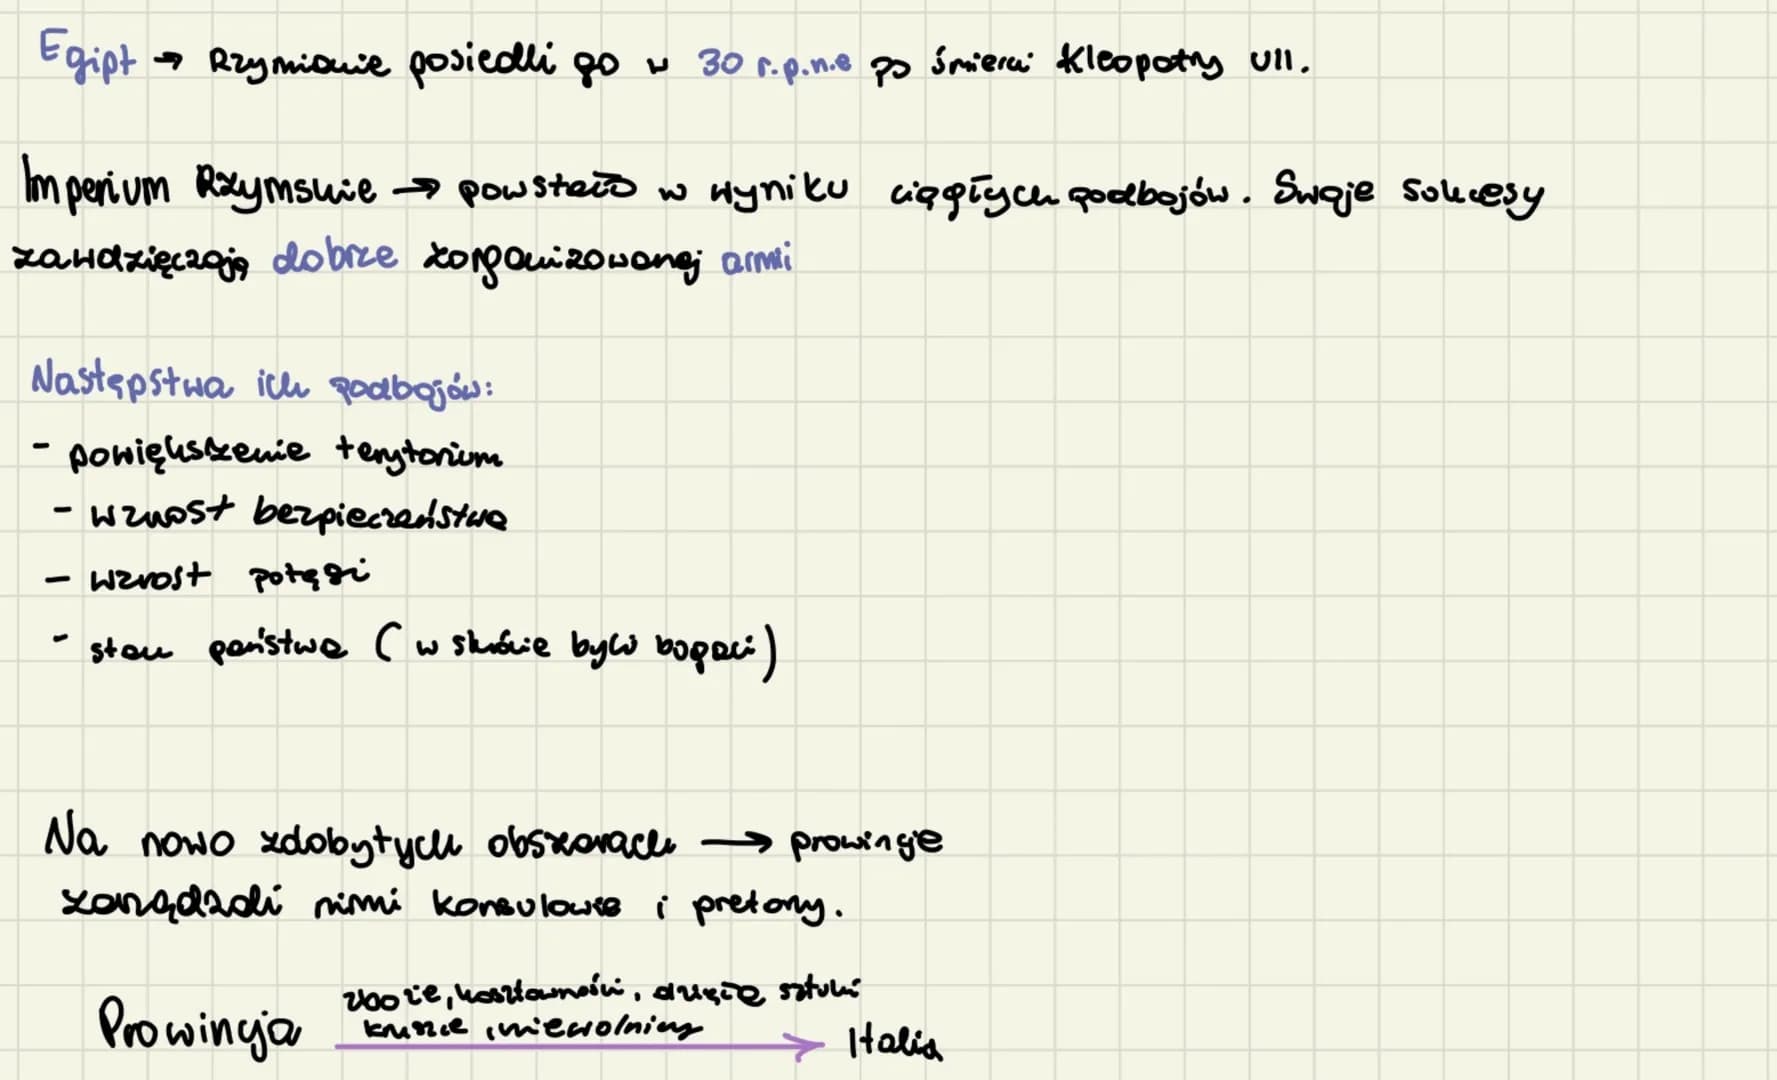 Egipt → Rzymianie posiedli go w 30 r.p.n.e po śmierci Kleopatry VII.
Imperium Rzymskie → powstało w wyniku ciągłych podbojów. Swoje sukcesy
zawdzięczają dobrze zorganizowanej armii
Następstwa ich podbojów:
- powiększenie terytorium
- wzrost bezpieczeństwa
- wzrost potęgi
- stan państwa (w skrócie byli bogaci)
Na nowo zdobytych obszarach → prowincje
zarządzali nimi konsulowie i pretorzy.
zboże, kosztowności, dzieła sztuki
kruszce, niewolnicy
Prowincja → Italia